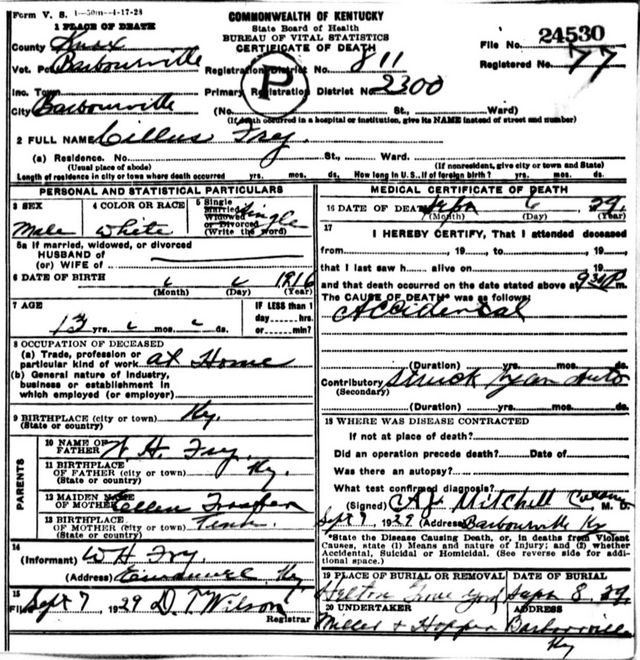 Form V. S. 1-50m-4-17-28
COMMONWEALTH OF KENTUCKY
State Board of Health
BUREAU OF VITAL STATISTICS
CERTIFICATE OF DEATH
File No. 24530
Registered No. 77
1 PLACE OF DEATH
County Knox
Vot. Pct. Barbourville
Registration District No. 811
Inc. Town
Primary Registration District No. 2300
P
City Barbourville
(No. St., Ward)
(If death occurred in a hospital or institution, give its NAME instead of street and number)
2 FULL NAME Cillus Fry.
(a) Residence. No. St., Ward.
(Usual place of abode) (If nonresident, give city or town and State)
Length of residence in city or town where death occurred yrs. mos. ds. How long in U.S., if of foreign birth? yrs. mos. ds.
PERSONAL AND STATISTICAL PARTICULARS
3 SEX Male
4 COLOR OR RACE White
5 Single Married Widowed or Divorced (Write the word) Single
5a If married, widowed, or divorced
HUSBAND of
(or) WIFE of
6 DATE OF BIRTH 1916
(Month) (Day) (Year)
7 AGE
13 yrs. mos. ds.
IF LESS than 1 day hrs. or min?
8 OCCUPATION OF DECEASED
(a) Trade, profession or particular kind of work at Home
(b) General nature of Industry, business or establishment in which employed (or employer)
9 BIRTHPLACE (city or town) Ky.
(State or country)
PARENTS
10 NAME OF FATHER W. H. Fry.
11 BIRTHPLACE OF FATHER (city or town) Ky.
(State or country)
12 MAIDEN NAME OF MOTHER Ellen
13 BIRTHPLACE OF MOTHER (city or town) Tenn.
(State or country)
14
(Informant) W H Fry.
(Address) Ky
15
Filed Sept 7 1929 D. T. Wilson
Registrar
MEDICAL CERTIFICATE OF DEATH
16 DATE OF DEATH 6 29.
(Month) (Day) (Year)
17
I HEREBY CERTIFY, That I attended deceased
from , 19 , to , 19
that I last saw h alive on 19
and that death occurred on the date stated above at 930P m.
The CAUSE OF DEATH* was as follows:
Accidental
(Duration) yrs. mos. ds.
Contributory Struck by an Auto
(Secondary)
(Duration) yrs. mos. ds.
18 WHERE WAS DISEASE CONTRACTED
If not at place of death?
Did an operation precede death?
Was there an autopsy?
What test confirmed diagnosis?
(Signed) Mitchell M. D.
Sept 7, 1929 (Address) Barbourville Ky
*State the Disease Causing Death, or, in deaths from Violent
Causes, state (1) Means and nature of Injury; and (2) whether
Accidental, Suicidal or Homicidal. (See reverse side for addi-
tional space.)
19 PLACE OF BURIAL OR REMOVAL Helton Grave Yard
DATE OF BURIAL Sept 8. 29.
20 UNDERTAKER Miller & Hopper
ADDRESS Barbourville Ky